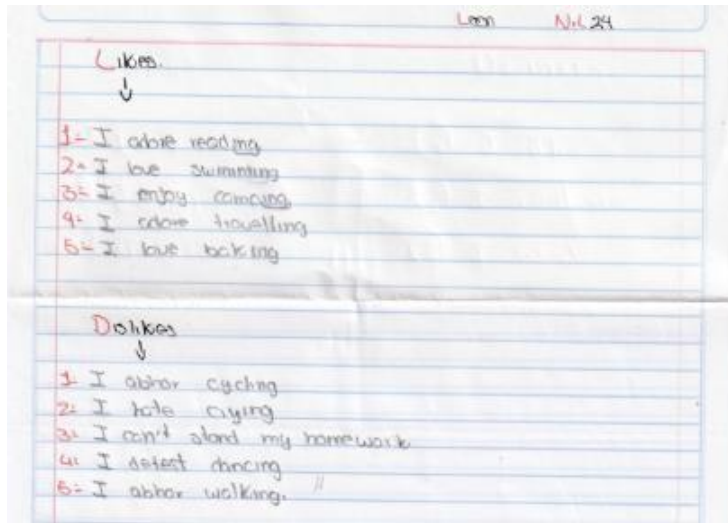 Leon N.L 24
Likes.
1- I adore reading
2- I love swimming
3- I enjoy camping
4- I adore travelling
5- I love baking
Dislikes
1- I abhor cycling
2- I hate crying
3- I can't stand my homework
4- I detest dancing
5- I abhor walking.